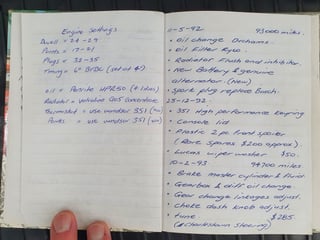 Engine Settings
Dwell = 24-29
Points = 17-21
Plugs = 32-35
Timing = 6° BTDC (set at 4°)
Oil = Penrite HPR50 (4 litres)
Radiator = Valvoline Concentrate
= use windsor 351
Points = use windsor 351
11-5-92 93000 miles.
• Oil change Duckhams.
• Oil Filter Ryco.
• Radiator Flush and inhibitor.
• New Battery & genuine
alternator (New)
• spark plug replace Bosch.
25-12-92.
• 351 High performance Keyring
• Console lid
• Plastic 2 pc front spoiler
(Rare Spares $200 approx)
• Lucas wiper motor $50.
10-2-93 94700 miles.
• Brake master cylinder & fluid.
• Gearbox & diff oil change.
• Gear change linkages adjust.
• Choke dash knob adjust.
• tune $285.
(Charlestown Steering)